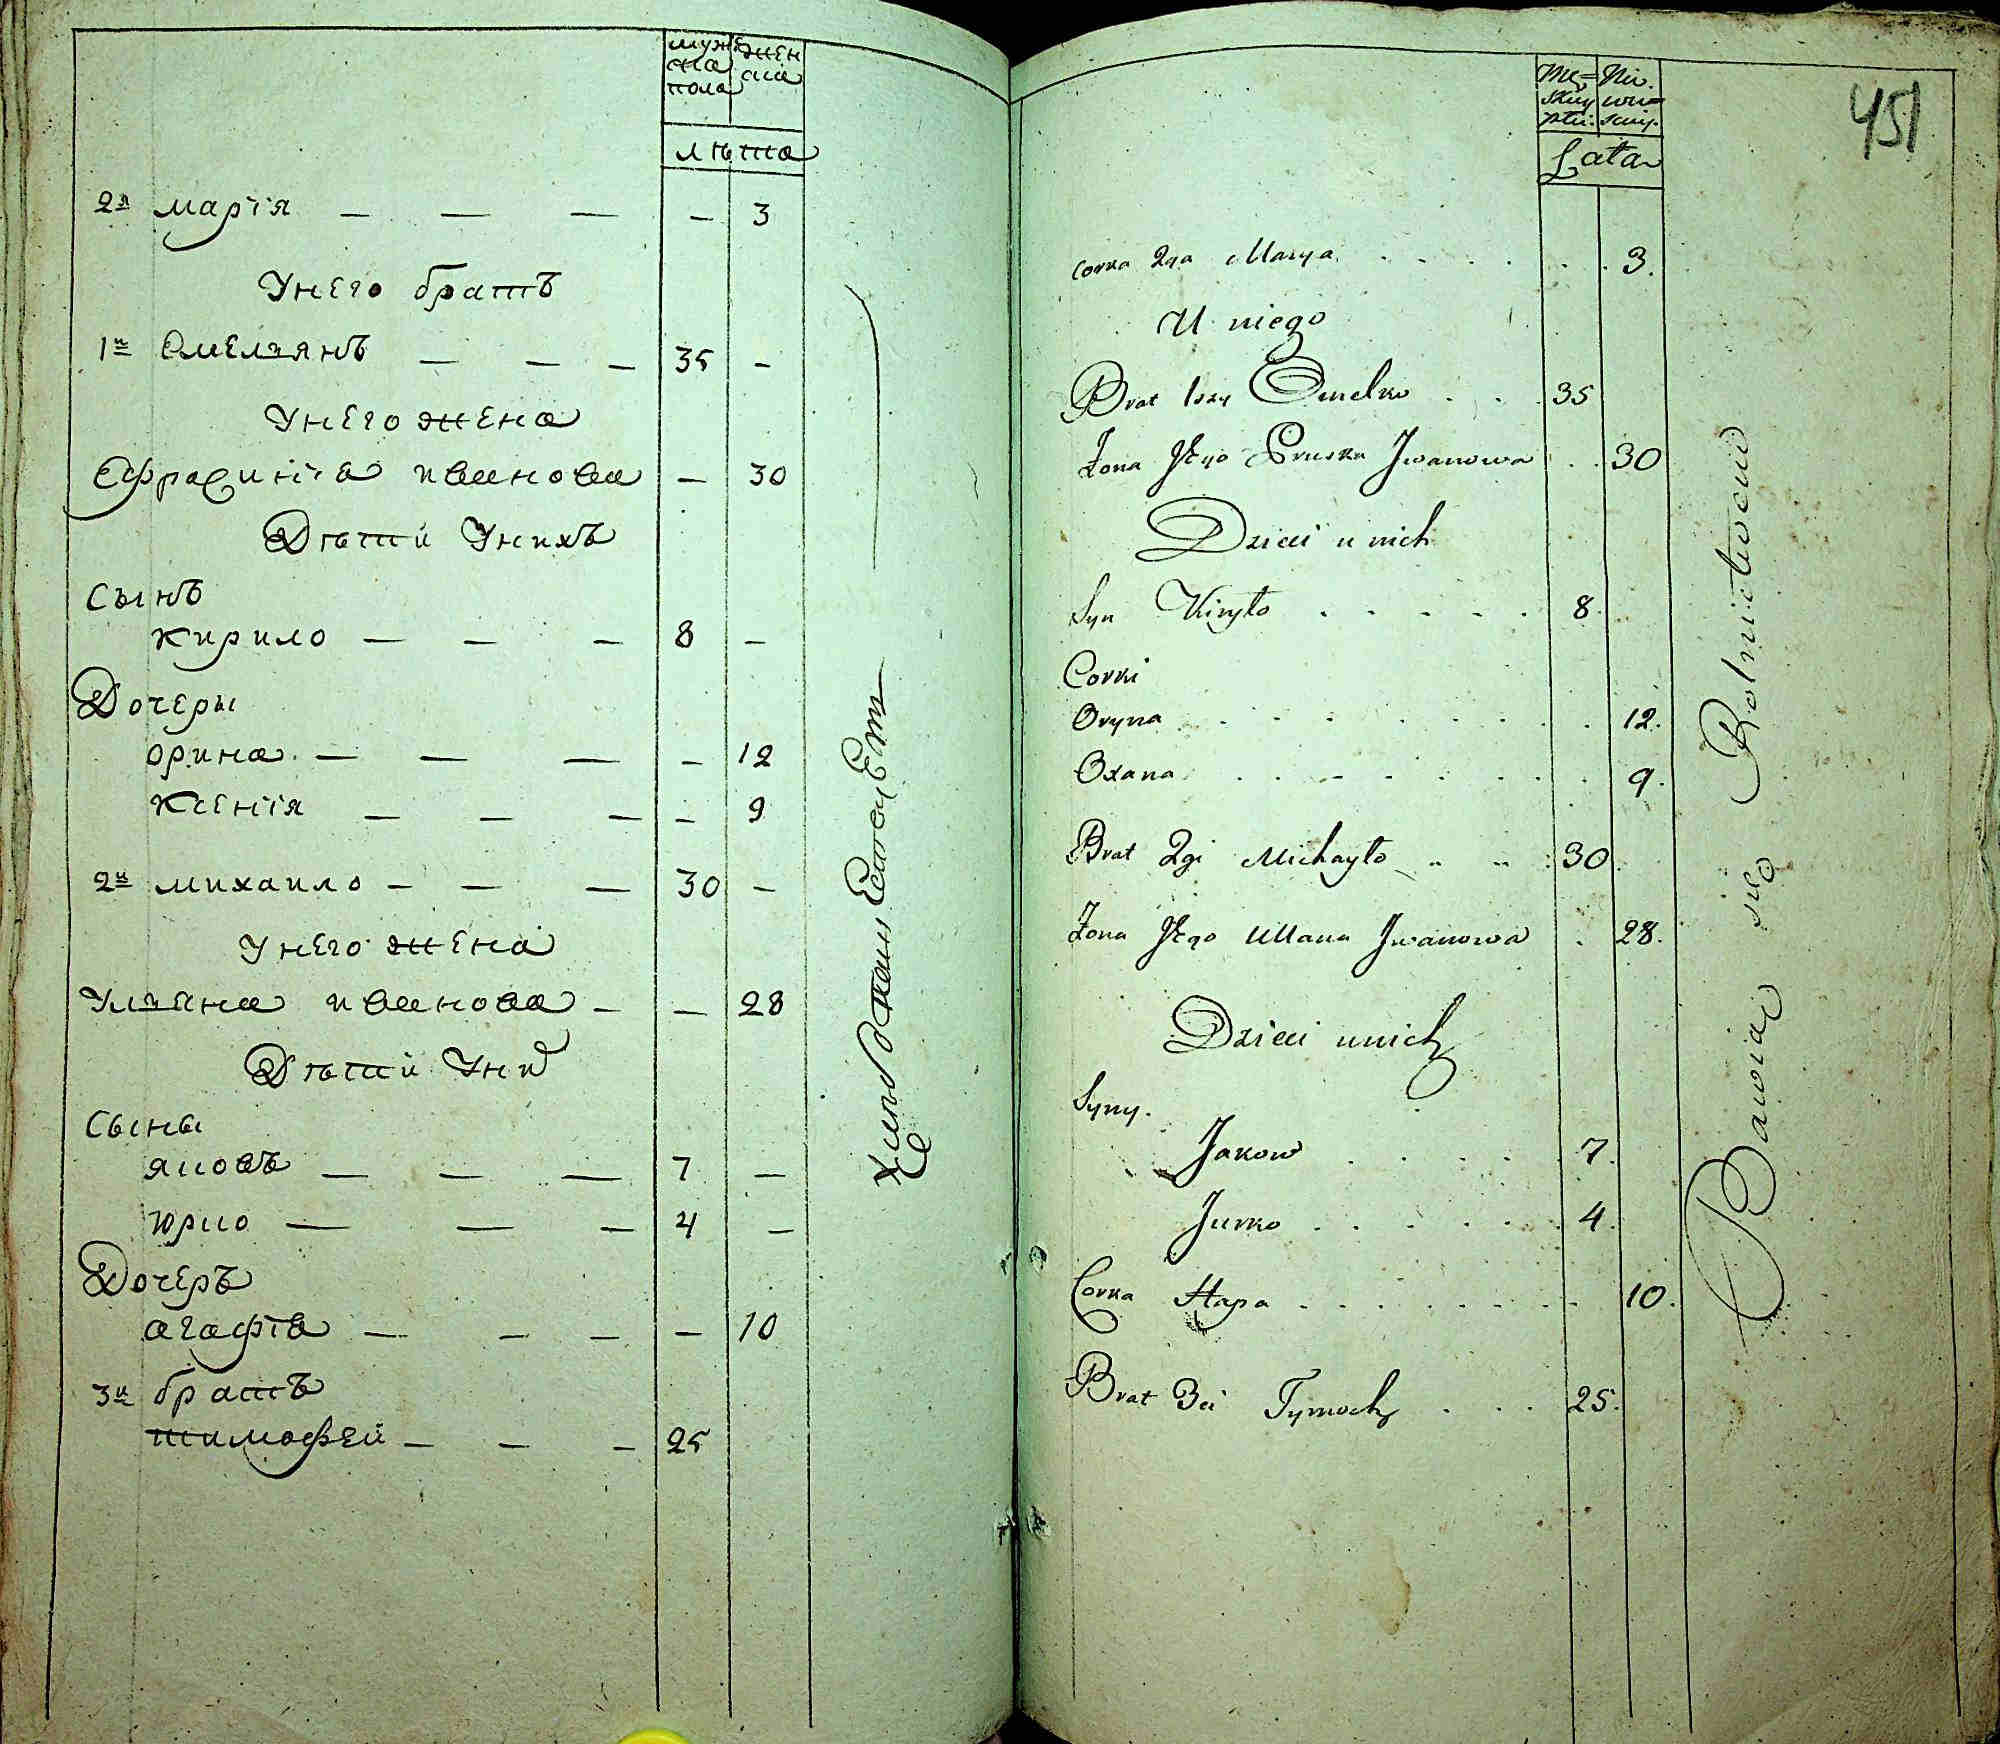 мужеска пола
женска
лѣта
2я марія — — — — 3
Унего братъ
1й Емельянъ — — — 35 —
Унего жена
Ефросинія иванова — 30
Дѣтй Унихъ
Сынъ
кирило — — — 8 —
Дочеры
орина — — — — 12
ксенія — — — — 9
2й михаило — — — 30 —
Унего жена
Ульяна иванова — — 28
Дѣтй Уних
Сыны
яковъ — — — 7 —
юрко — — — 4 —
Дочеръ
агафія — — — — 10
3й братъ
тимофей — — — 25
451
Mę=skiey płci.
Nie.wie=sciey.
Lata
corka 2ga Marya . . . . . . . 3.
U niego
Brat 1szy Omelko . . . 35
Żona Jego Pruska Jwanowa . . 30
Dzieci u nich
Syn Kiryło . . . . . 8.
Corki
Oryna . . . . . . . . 12.
Oxana . . . . . . . . 9.
Brat 2gi Michayło .. .. : 30.
Żona Jego Ullana Jwanowa . 28.
Dzieci unich
Syny.
Jakow . . . . 7.
Jurko . . . . . . 4.
Corka Hapa . . . . . . . . . 10.
Brat 3ci Tymoch . . . 25.
Bawią się Rolnictwem